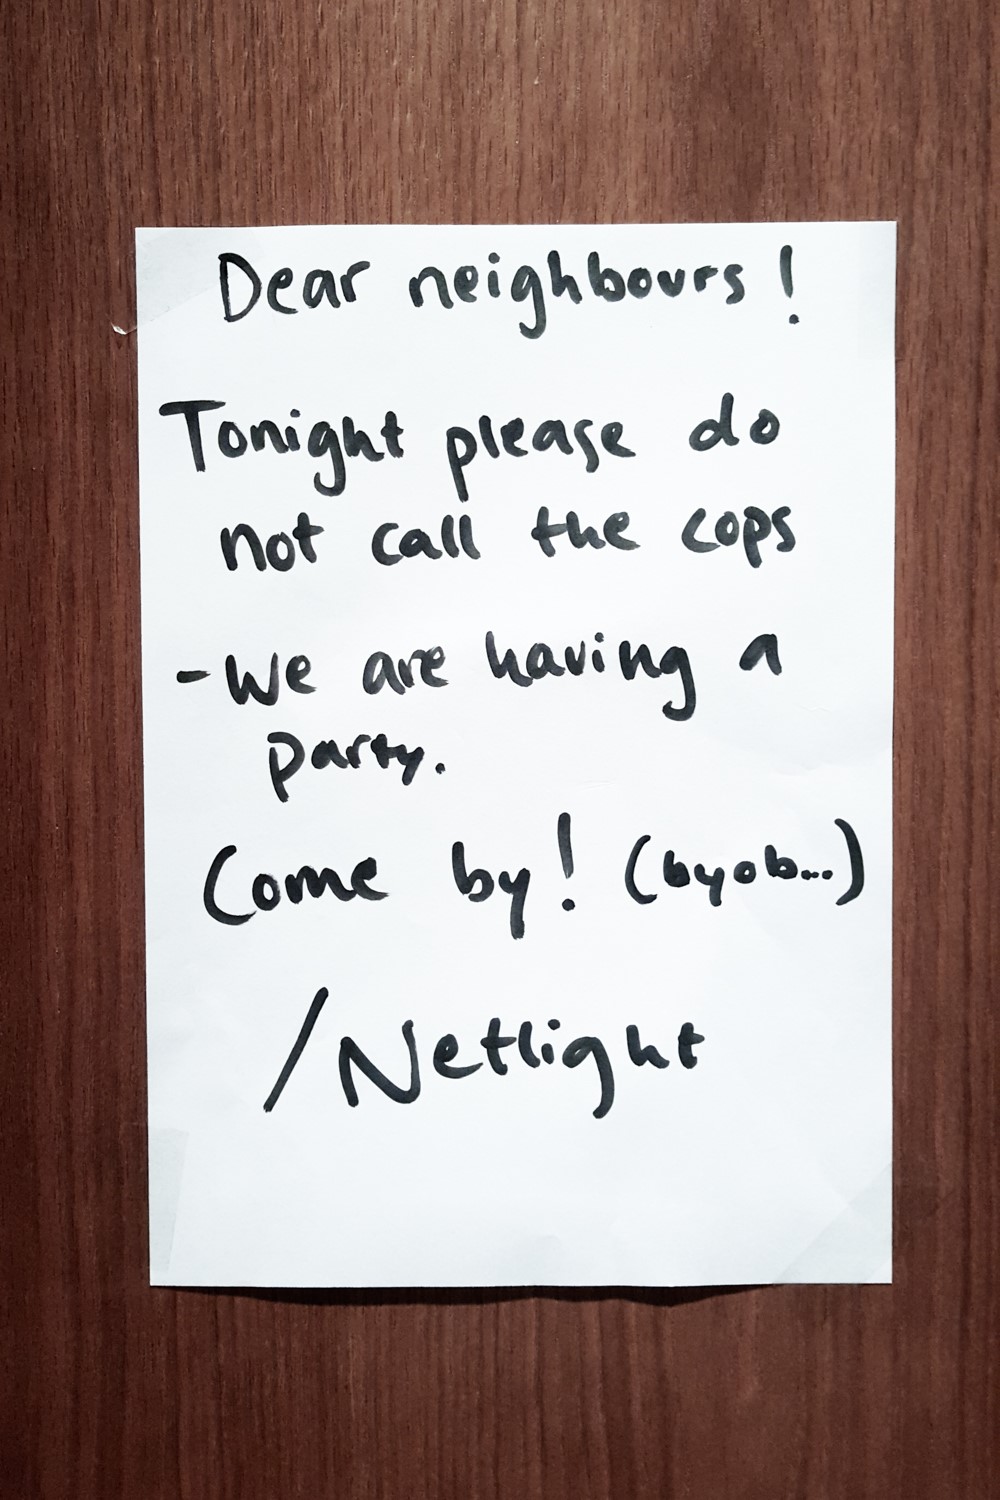 Dear neighbours!
Tonight please do
not call the cops
- We are having a
party.
Come by! (byob...)
/Netlight